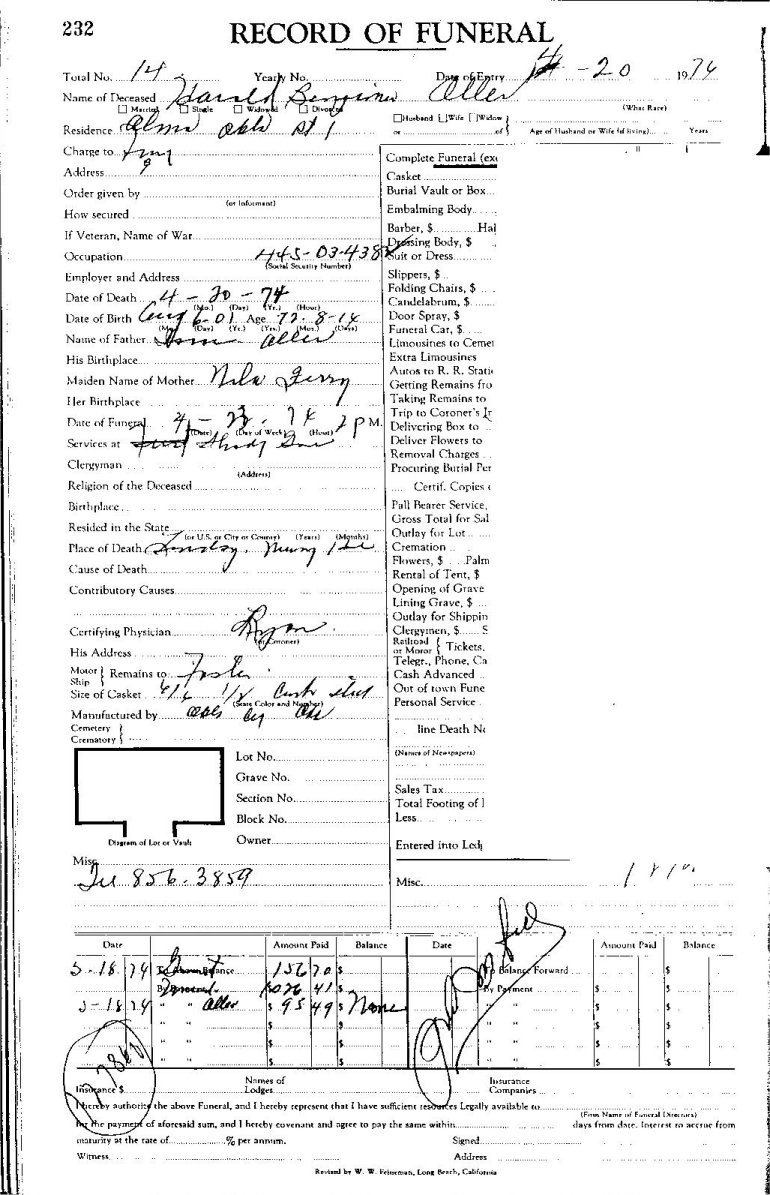 232
RECORD OF FUNERAL
Total No. 14 Yearly No. Date of Entry 4 - 20 1976
Name of Deceased Harold Oller (What Race)
☐ Married ☐ Single ☐ Widowed ☐ Divorced
☐Husband ☐Wife ☐Widow
or of Age of Husband or Wife (if living) Years
Residence Alma Okla Rt 1
Charge to
Address
Order given by
(or Informant)
How secured
If Veteran, Name of War
Occupation 445-03-438
(Social Security Number)
Employer and Address
Date of Death 4 - 20 - 74
(Mo.) (Day) (Yr.) (Hour)
Date of Birth Aug 6-01 Age 72-8-14
(Mo.) (Day) (Yr.) (Yrs.) (Mos.) (Days)
Name of Father Oller
His Birthplace
Maiden Name of Mother Nila
Her Birthplace
Date of Funeral 4 - 23 - 74 2 P M.
(Date) (Day of Week) (Hour)
Services at Shady
Clergyman
(Address)
Religion of the Deceased
Birthplace
Resided in the State
(or U.S. or City or County) (Years) (Months)
Place of Death Lindsay
Cause of Death
Contributory Causes
Certifying Physician Ryan
(or Coroner)
His Address
Motor
Ship
Remains to Foster
Size of Casket
(State Color and Number)
Manufactured by Okla City Okla
Cemetery
Crematory
Lot No.
Grave No.
Section No.
Block No.
Owner
Diagram of Lot or Vault
Misc.
856-3859
Complete Funeral (exc
Casket
Burial Vault or Box
Embalming Body
Barber, $ Hai
Dressing Body, $
Suit or Dress
Slippers, $
Folding Chairs, $
Candelabrum, $
Door Spray, $
Funeral Car, $
Limousines to Cemet
Extra Limousines
Autos to R. R. Static
Getting Remains fro
Taking Remains to
Trip to Coroner's Ir
Delivering Box to
Deliver Flowers to
Removal Charges
Procuring Burial Per
Certif. Copies
Pall Bearer Service,
Gross Total for Sal
Outlay for Lot
Cremation
Flowers, $ Palm
Rental of Tent, $
Opening of Grave
Lining Grave, $
Outlay for Shippin
Clergymen, $ S
Railroad
or Motor
Tickets,
Telegr., Phone, Ca
Cash Advanced
Out of town Fune
Personal Service
line Death No
(Names of Newspapers)
Sales Tax
Total Footing of
Less
Entered into Led
Misc.
Date Amount Paid Balance Date Amount Paid Balance
5-18 74 1567 0 $ Balance Forward $
By 1026 41 $ By Payment $
5-18 74 " " Oller $ 95 49 $ None
Insurance $
Names of
Lodges
Insurance
Companies
I hereby authorize the above Funeral, and I hereby represent that I have sufficient resources Legally available to
(Firm Name of Funeral Directors)
for the payment of aforesaid sum, and I hereby covenant and agree to pay the same within days from date. Interest to accrue from
maturity at the rate of % per annum. Signed
Witness Address
Revised by W. W. Feineman, Long Beach, California